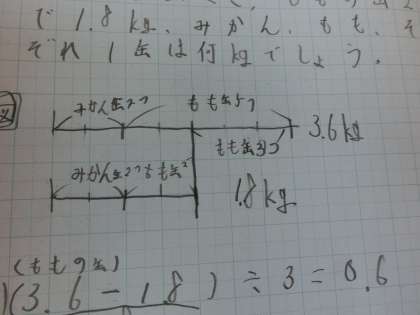 で 1.8kg、みかん、もも、そ
ぞれ 1缶は何kgでしょう。
図
みかん缶2つ もも缶5つ
3.6kg
もも缶3つ
みかん缶2つ もも缶2
1.8kg
(ももの缶)
(3.6-1.8)÷3=0.6